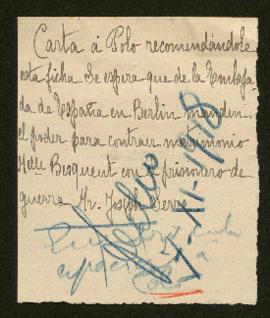 Carta á Polo recomendándole
esta ficha Se espera que de la Embaja
da de España en Berlin manden
el poder para contraer matrimonio
Melle Besquent con el prisionero de
guerra Mr. Joseph Serre
Archivo
XI-1918